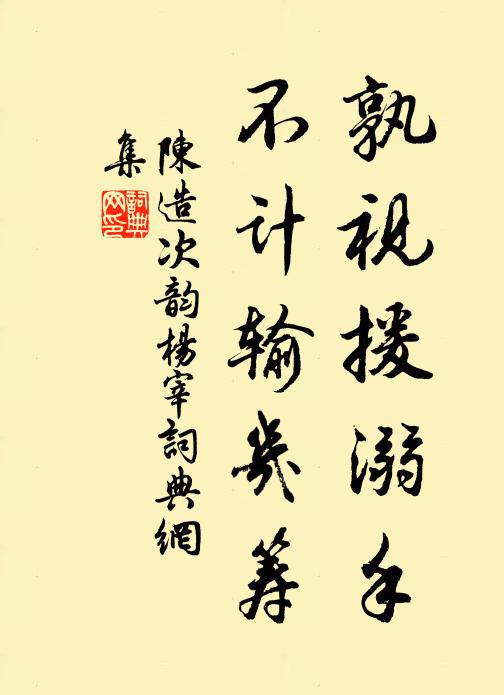 孰视援溺手
不计输几筹
陳造次韵楊宰詞典網
集
詞典
网印